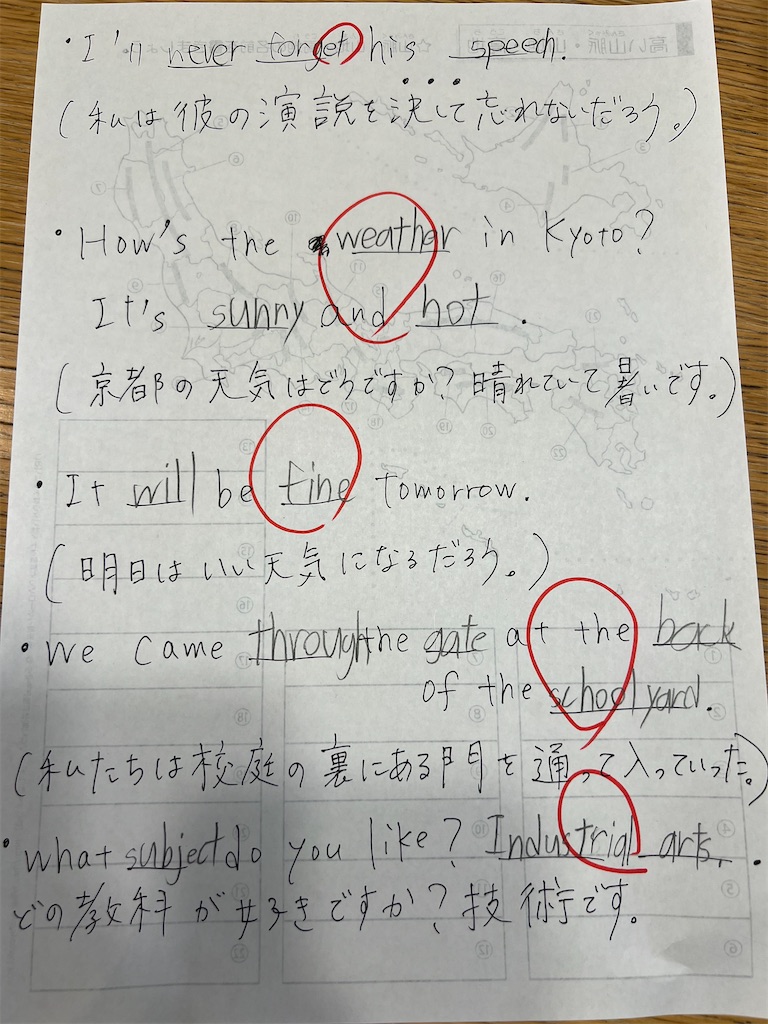 ・I'll never forget his speech.
(私は彼の演説を決して忘れないだろう。)
・How's the weather in Kyoto?
It's sunny and hot.
(京都の天気はどうですか?晴れていて暑いです。)
・It will be fine tomorrow.
(明日はいい天気になるだろう。)
・We came through the gate at the back
of the schoolyard.
(私たちは校庭の裏にある門を通って入っていった。)
・what subject do you like? Industrial arts.
どの教科が好きですか?技術です。